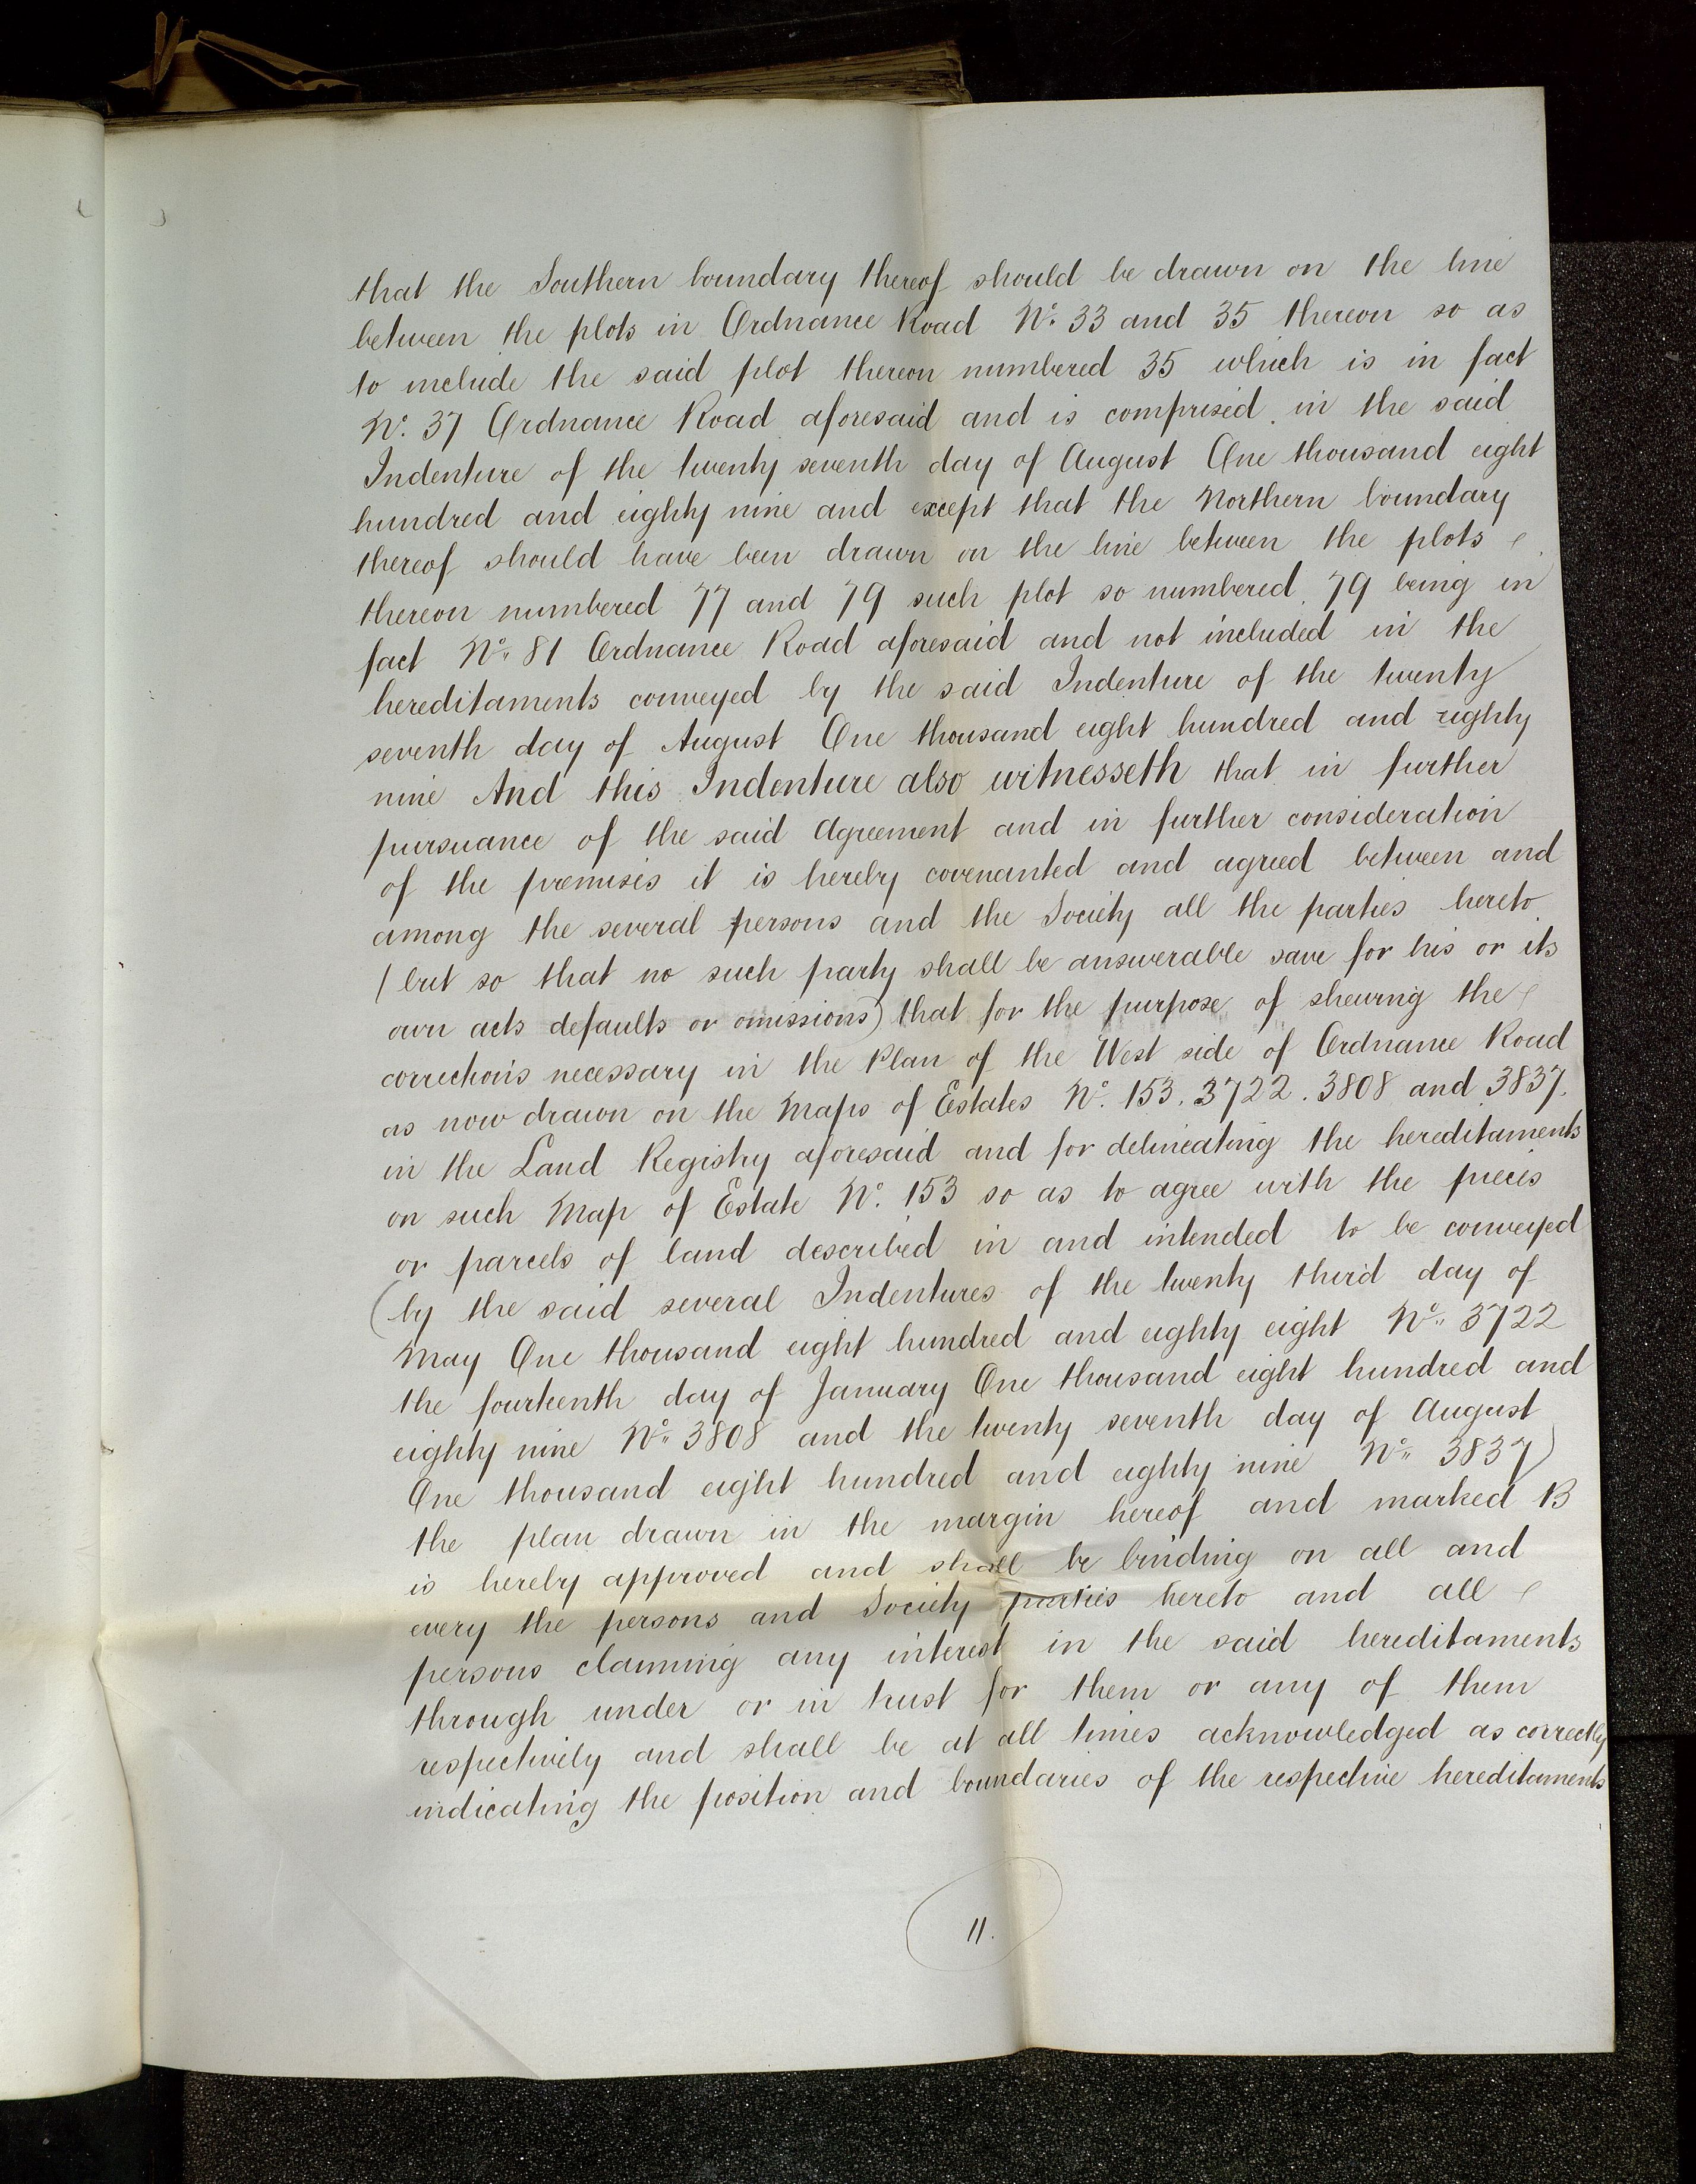 that the Southern boundary thereof should be drawn on the line
between the plots in Ordnance Road No. 33 and 35 thereon so as
to include the said plot thereon numbered 35 which is in fact
No. 37 Ordnance Road aforesaid and is comprised in the said
Indenture of the twenty seventh day of August One thousand eight
hundred and eighty nine and except that the Northern boundary
thereof should have been drawn on the line between the plots
thereon numbered 77 and 79 such plot so numbered 79 being in
fact No. 81 Ordnance Road aforesaid and not included in the
hereditaments conveyed by the said Indenture of the twenty
seventh day of August One thousand eight hundred and eighty
nine And this Indenture also witnesseth that in further
pursuance of the said Agreement and in further consideration
of the premises it is hereby covenanted and agreed between and
among the several persons and the Society all the parties hereto
(but so that no such party shall be answerable save for his or its
own acts defaults or omissions) that for the purpose of shewing the
corrections necessary in the Plan of the West side of Ordnance Road
as now drawn on the Maps of Estates No. 153. 3722. 3808 and 3837.
in the Land Registry aforesaid and for delineating the hereditaments
on such Map of Estate No. 153 so as to agree with the pieces
or parcels of land described in and intended to be conveyed
(by the said several Indentures of the twenty third day of
May One thousand eight hundred and eighty eight No. 3722
the fourteenth day of January One thousand eight hundred and
eighty nine No. 3808 and the twenty seventh day of August
One thousand eight hundred and eighty nine No. 3837)
the plan drawn in the margin hereof and marked B
is hereby approved and shall be binding on all and
every the persons and Society parties hereto and all
persons claiming any interest in the said hereditaments
through under or in trust for them or any of them
respectively and shall be at all times acknowledged as correctly
indicating the position and boundaries of the respective hereditaments
11.